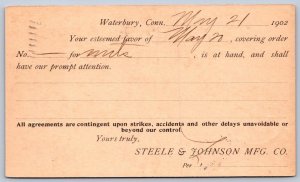 Waterbury, Conn. May 21 1902
Your esteemed favor of May 20, covering order
No. — for nuts, is at hand, and shall
have our prompt attention.
All agreements are contingent upon strikes, accidents and other delays unavoidable or
beyond our control.
Yours truly,
STEELE & JOHNSON MFG. CO.
Per